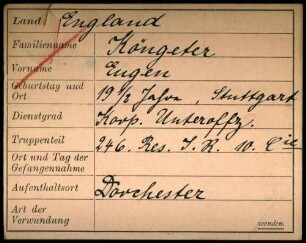 Land England
Familienname Köngeter
Vorname Eugen
Geburtstag und Ort 19 1/2 Jahre, Stuttgart
Dienstgrad Korp. Unteroffz.
Truppenteil 246. Res. I. R. 10. Cie
Ort und Tag der Gefangennahme
Aufenthaltsort Dorchester
Art der Verwundung
wenden.